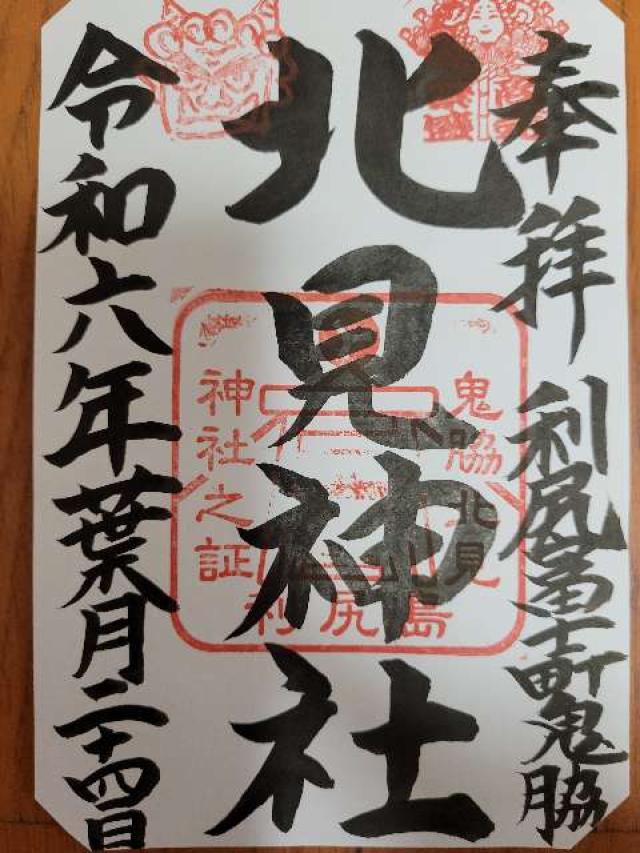 奉拝 利尻富士町鬼脇
北見神社
令和六年葉月二十四日
鬼脇 北見
神社之証
利尻島